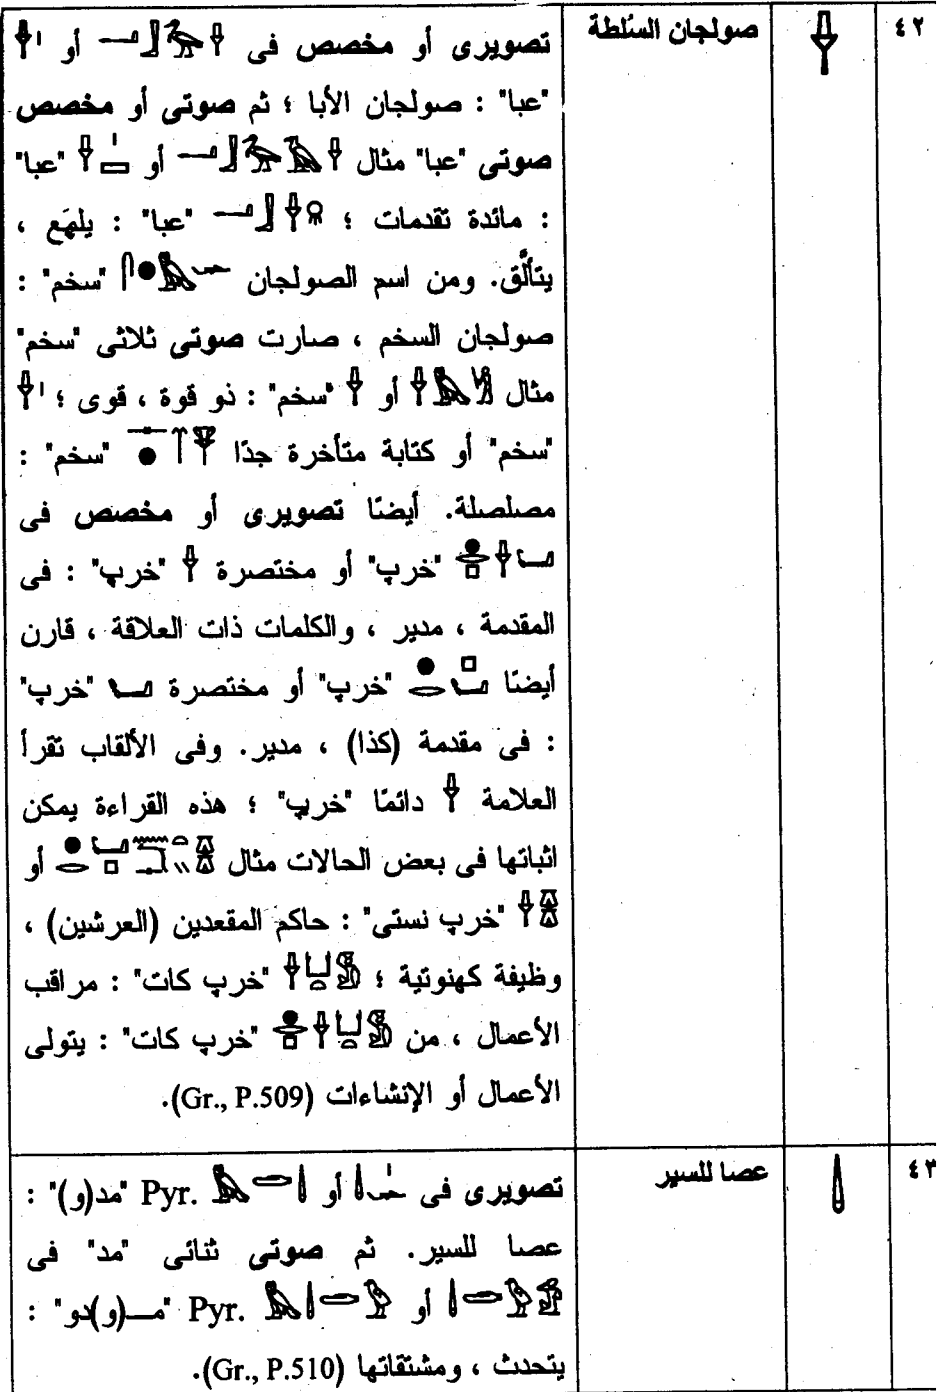 ٤٢ صولجان السلطة تصويرى أو مخصص فى أو
"عبا" : صولجان الأبا ؛ ثم صوتى أو مخصص
صوتى "عبا" مثال أو "عبا"
: مائدة تقدمات ؛ "عبا" : يلهَع ،
يتألَّق. ومن اسم الصولجان "سخم" :
صولجان السخم ، صارت صوتى ثلاثى "سخم"
مثال أو "سخم" : ذو قوة ، قوى ؛
"سخم" أو كتابة متأخرة جدًا "سخم" :
مصلصلة. أيضًا تصويرى أو مخصص فى
"خرپ" أو مختصرة "خرپ" : فى
المقدمة ، مدير ، والكلمات ذات العلاقة ، قارن
أيضًا "خرپ" أو مختصرة "خرپ"
: فى مقدمة (كذا) ، مدير. وفى الألقاب تقرأ
العلامة دائمًا "خرپ" ؛ هذه القراءة يمكن
اثباتها فى بعض الحالات مثال أو
"خرپ نستى" : حاكم المقعدين (العرشين) ،
وظيفة كهنوتية ؛ "خرپ كات" : مراقب
الأعمال ، من "خرپ كات" : يتولى
الأعمال أو الإنشاءات (Gr., P.509).
٤٣ عصا للسير تصويرى فى أو Pyr. "مد(و)" :
عصا للسير. ثم صوتى ثنائى "مد" فى
أو Pyr. "مـــ(و)دو" :
يتحدث ، ومشتقاتها (Gr., P.510).